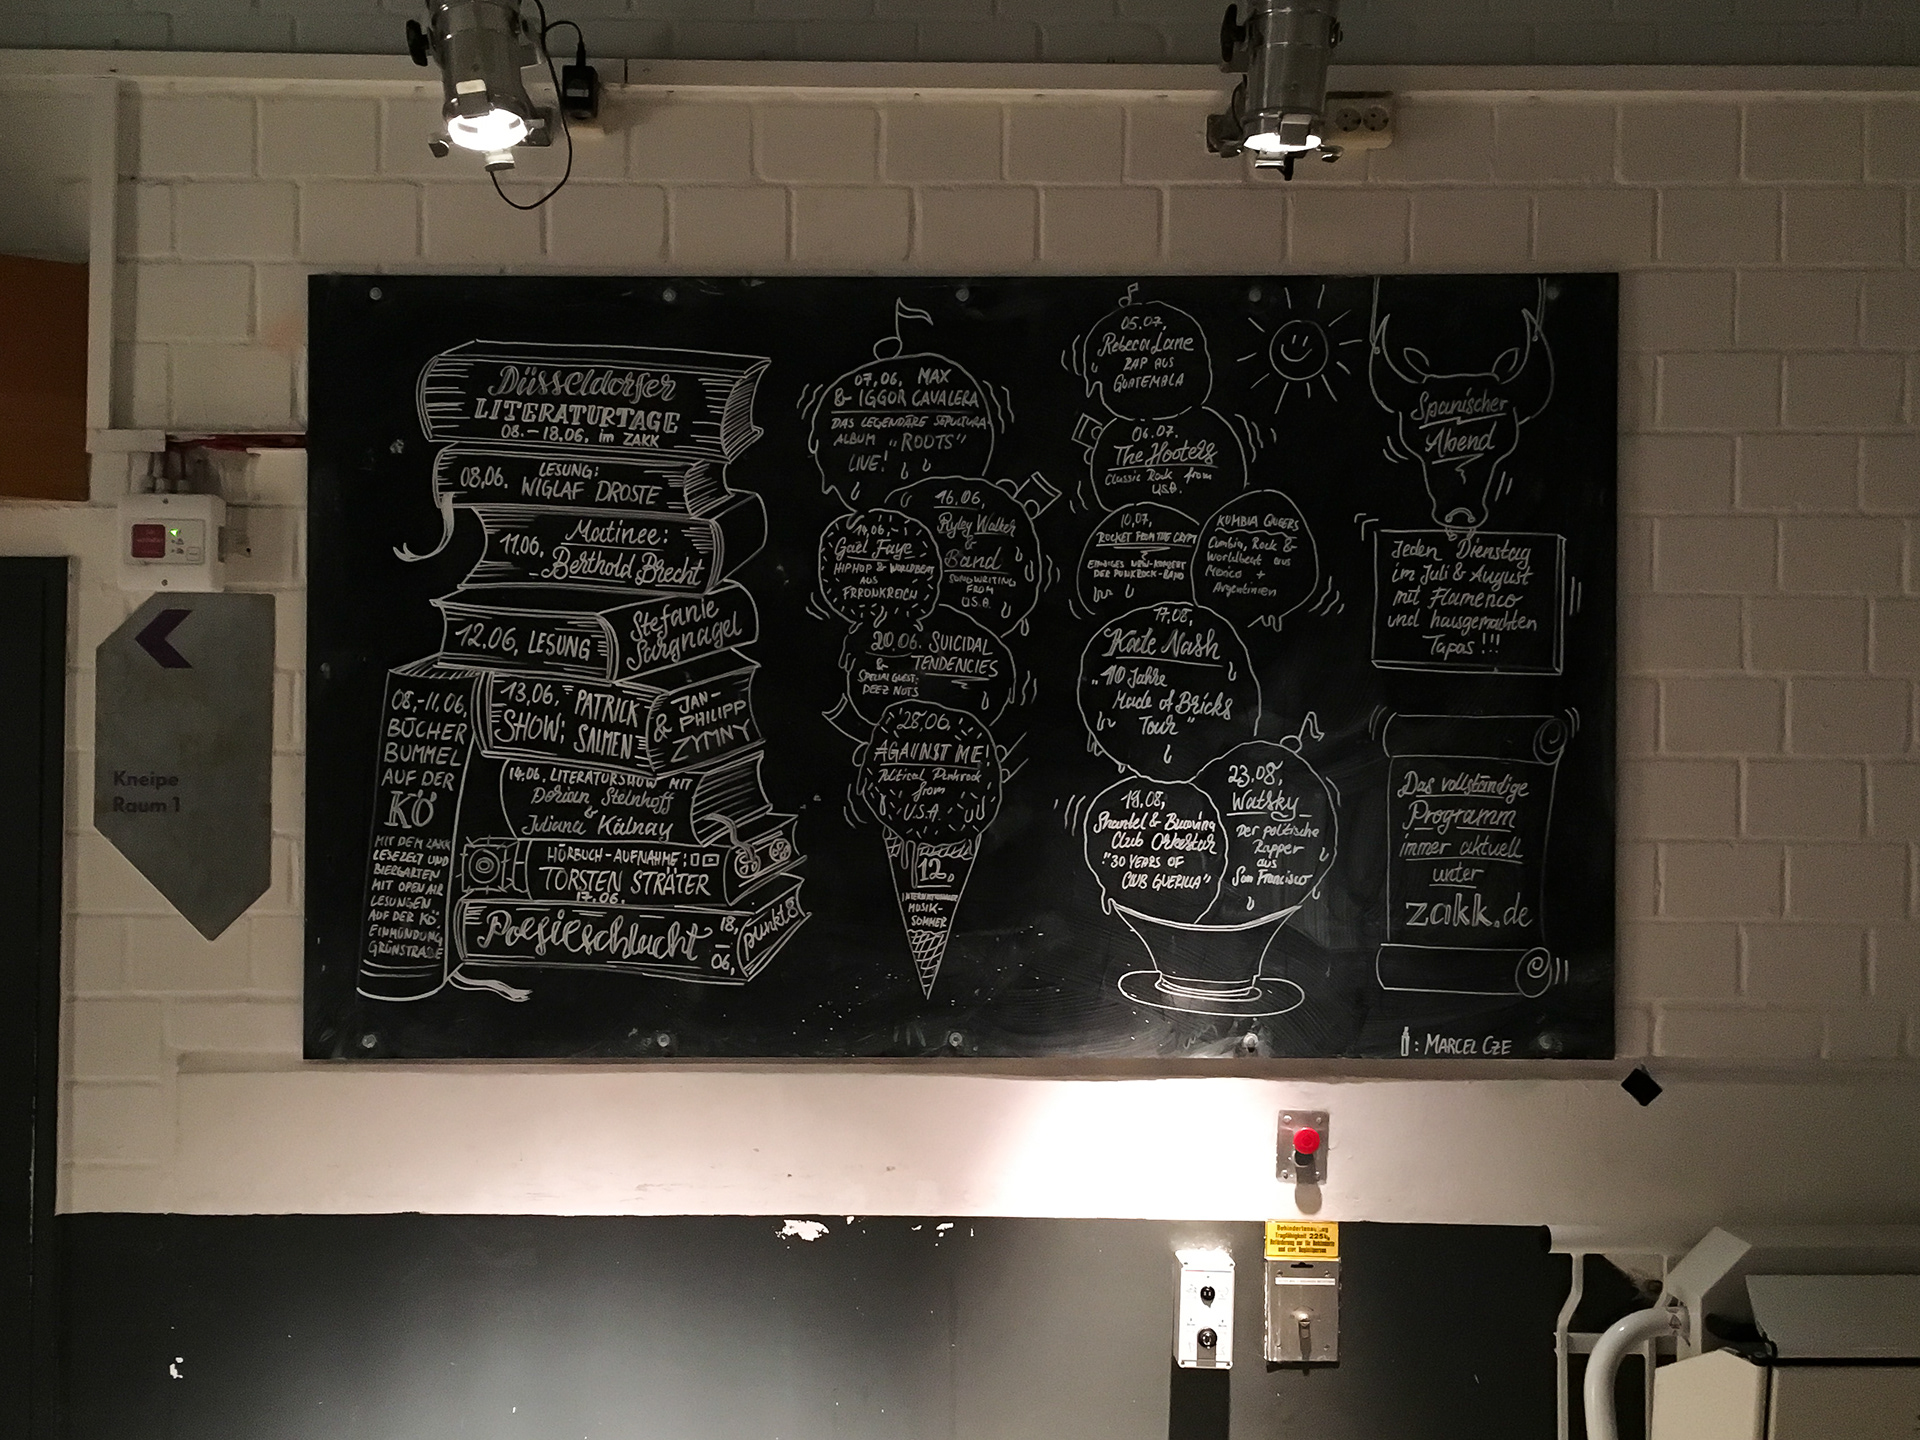 Düsseldorfer
LITERATURTAGE
08.-18.06. im ZAKK
08.06. LESUNG:
WIGLAF DROSTE
11.06. Matinee:
Berthold Brecht
12.06. LESUNG
Stefanie
Sargnagel
13.06. PATRICK
SHOW: SALMEN
& JAN-
PHILIPP
ZYMNY
14.06. LITERATURSHOW MIT
Dorian Steinhoff
&
Juliana Kálnay
HÖRBUCH-AUFNAHME:
TORSTEN STRÄTER
17.06.
Poesieschlacht
18.
06.
punkt8
08.-11.06.
BÜCHER
BUMMEL
AUF DER
KÖ
MIT DEM ZAKK
LESEZELT UND
BIERGARTEN
MIT OPEN AIR
LESUNGEN
AUF DER KÖ
EINMÜNDUNG
GRÜNSTRAßE
07.06. MAX
& IGGOR CAVALERA
DAS LEGENDÄRE SEPULTURA
ALBUM „ROOTS“
LIVE!
16.06.
Ryley Walker
&
Band
SONGWRITING
FROM
U.S.A.
14.06.
Gaël Faye
HIPHOP & WORLDBEAT
AUS
FRRONKREICH
20.06. SUICIDAL
& TENDENCIES
SPECIAL GUEST:
DEEZ NUTS
28.06.
AGAINST ME!
Political Punkrock
from
U.S.A.
12.
INTERNATIONALER
MUSIK-
SOMMER
05.07.
Rebeca Lane
RAP AUS
GUATEMALA
06.07.
The Hooters
Classic Rock from
U.S.A.
10.07.
ROCKET FROM THE CRYPT
EINZIGES NRW-KONZERT
DER PUNKROCK-BAND
KUMBIA QUEERS
Cumbia, Rock &
Worldbeat aus
Mexico +
Argentinien
17.08.
Kate Nash
„10 Jahre
Made of Bricks
Tour“
19.08.
Shantel & Bucovina
Club Orkestar
"30 YEARS OF
CLUB GUERILLA"
23.08.
Watsky
Der politische
Rapper
aus
San Francisco
Spanischer
Abend
Jeden Dienstag
im Juli & August
mit Flamenco
und hausgemachten
Tapas!!!
Das vollständige
Programm
immer aktuell
unter
zakk.de
: MARCEL CZE
Kneipe
Raum 1
Tragfähigkeit 225kg